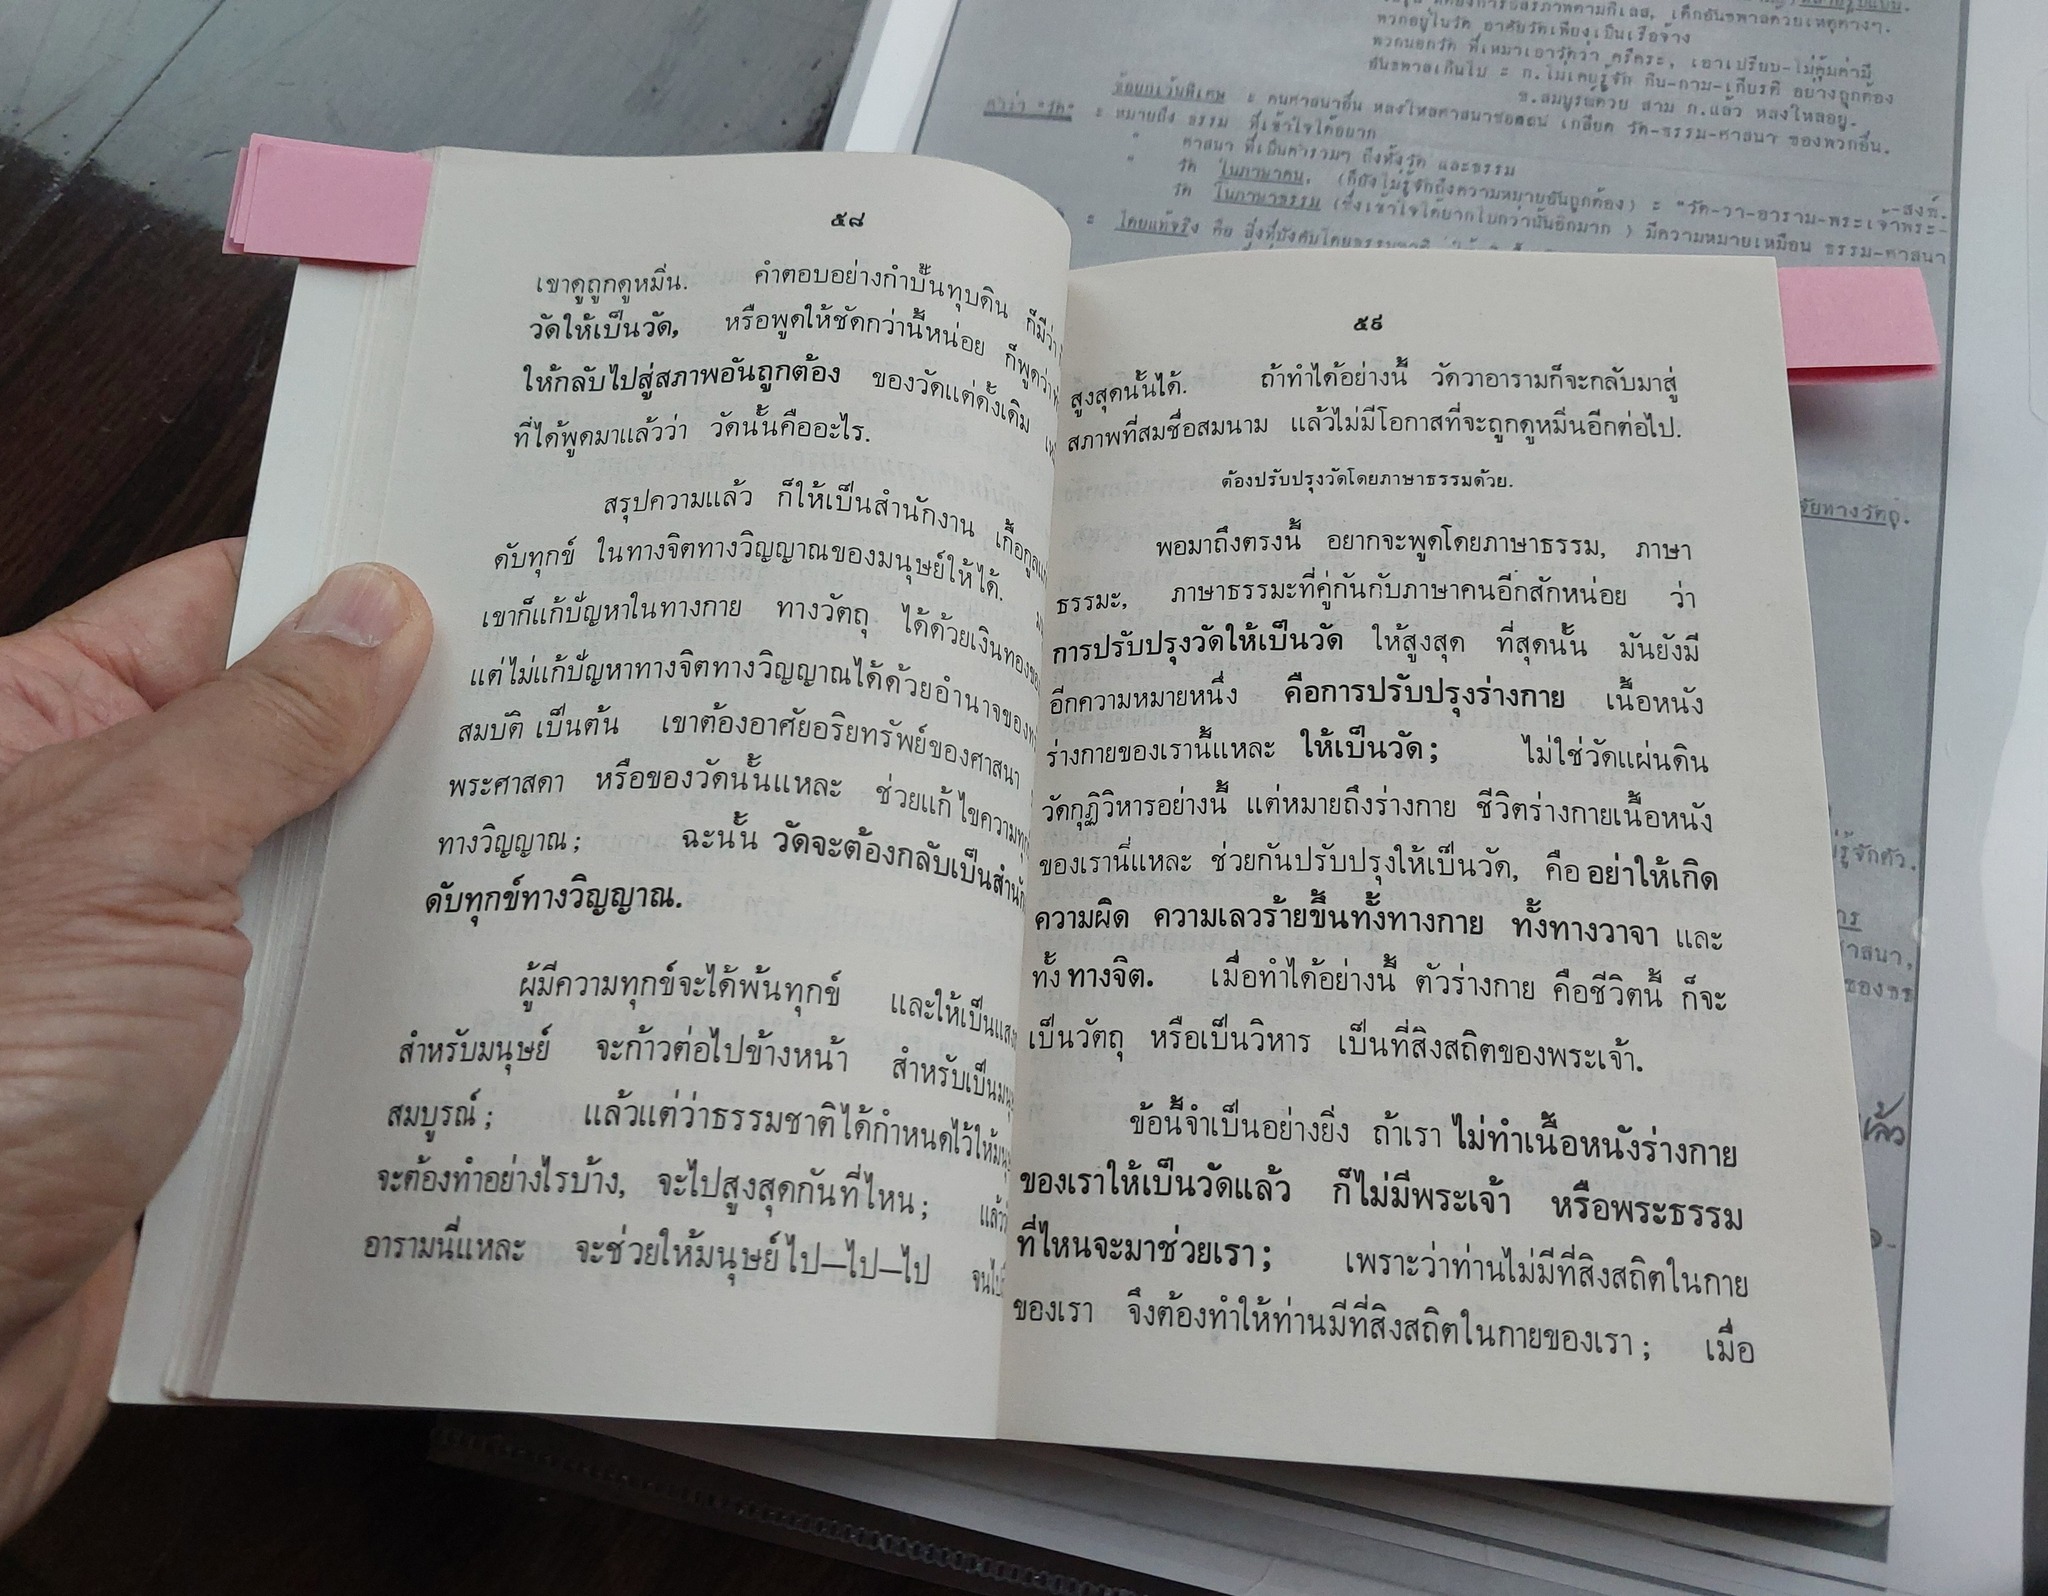 ๕๘
เขาดูถูกดูหมิ่น. คำตอบอย่างกำปั้นทุบดิน ก็มีว่า
วัดให้เป็นวัด, หรือพูดให้ชัดกว่านี้หน่อย ก็พูดว่า
ให้กลับไปสู่สภาพอันถูกต้อง ของวัดแต่ดั้งเดิม
ที่ได้พูดมาแล้วว่า วัดนั้นคืออะไร.
สรุปความแล้ว ก็ให้เป็นสำนักงาน เกื้อกูล
ดับทุกข์ ในทางจิตทางวิญญาณของมนุษย์ให้ได้.
เขาก็แก้ปัญหาในทางกาย ทางวัตถุ ได้ด้วยเงินทอง
แต่ไม่แก้ปัญหาทางจิตทางวิญญาณได้ด้วยอำนาจของ
สมบัติ เป็นต้น เขาต้องอาศัยอริยทรัพย์ของศาสนา
พระศาสดา หรือของวัดนั้นแหละ ช่วยแก้ไขความ
ทางวิญญาณ; ฉะนั้น วัดจะต้องกลับเป็น
ดับทุกข์ทางวิญญาณ.
ผู้มีความทุกข์จะได้พ้นทุกข์ และให้เป็น
สำหรับมนุษย์ จะก้าวต่อไปข้างหน้า สำหรับเป็น
สมบูรณ์; แล้วแต่ว่าธรรมชาติได้กำหนดไว้ให้
จะต้องทำอย่างไรบ้าง, จะไปสูงสุดกันที่ไหน;
อารามนี่แหละ จะช่วยให้มนุษย์ไป—ไป—ไป
๕๙
สูงสุดนั้นได้. ถ้าทำได้อย่างนี้ วัดวาอารามก็จะกลับมาสู่
สภาพที่สมชื่อสมนาม แล้วไม่มีโอกาสที่จะถูกดูหมิ่นอีกต่อไป.
ต้องปรับปรุงวัดโดยภาษาธรรมด้วย.
พอมาถึงตรงนี้ อยากจะพูดโดยภาษาธรรม, ภาษา
ธรรมะ, ภาษาธรรมะที่คู่กันกับภาษาคนอีกสักหน่อย ว่า
การปรับปรุงวัดให้เป็นวัด ให้สูงสุด ที่สุดนั้น มันยังมี
อีกความหมายหนึ่ง คือการปรับปรุงร่างกาย เนื้อหนัง
ร่างกายของเรานี้แหละ ให้เป็นวัด; ไม่ใช่วัดแผ่นดิน
วัดกุฏิวิหารอย่างนี้ แต่หมายถึงร่างกาย ชีวิตร่างกายเนื้อหนัง
ของเรานี่แหละ ช่วยกันปรับปรุงให้เป็นวัด, คือ อย่าให้เกิด
ความผิด ความเลวร้ายขึ้นทั้งทางกาย ทั้งทางวาจา และ
ทั้งทางจิต. เมื่อทำได้อย่างนี้ ตัวร่างกาย คือชีวิตนี้ ก็จะ
เป็นวัตถุ หรือเป็นวิหาร เป็นที่สิงสถิตของพระเจ้า.
ข้อนี้จำเป็นอย่างยิ่ง ถ้าเรา ไม่ทำเนื้อหนังร่างกาย
ของเราให้เป็นวัดแล้ว ก็ไม่มีพระเจ้า หรือพระธรรม
ที่ไหนจะมาช่วยเรา; เพราะว่าท่านไม่มีที่สิงสถิตในกาย
ของเรา จึงต้องทำให้ท่านมีที่สิงสถิตในกายของเรา; เมื่อ
พวกอยู่ในวัด อาศัยวัดเพียงเป็นเรือจ้าง
ข้อยกเว้นพิเศษ
คำว่า "วัด" = หมายถึง ธรรม ที่เข้าใจได้อยาก
" ศาสนา ที่เป็นคำรวมๆ ถึงทั้งวัด และธรรม
" วัด ในภาษาคน, (ก็ยังไม่รู้จักถึงความหมายอันถูกต้อง)
วัด ในภาษาธรรม
= "วัด-วา-อาราม-พระเจ้าพระ-
-สงฆ์.
มีความหมายเหมือน ธรรม-ศาสนา